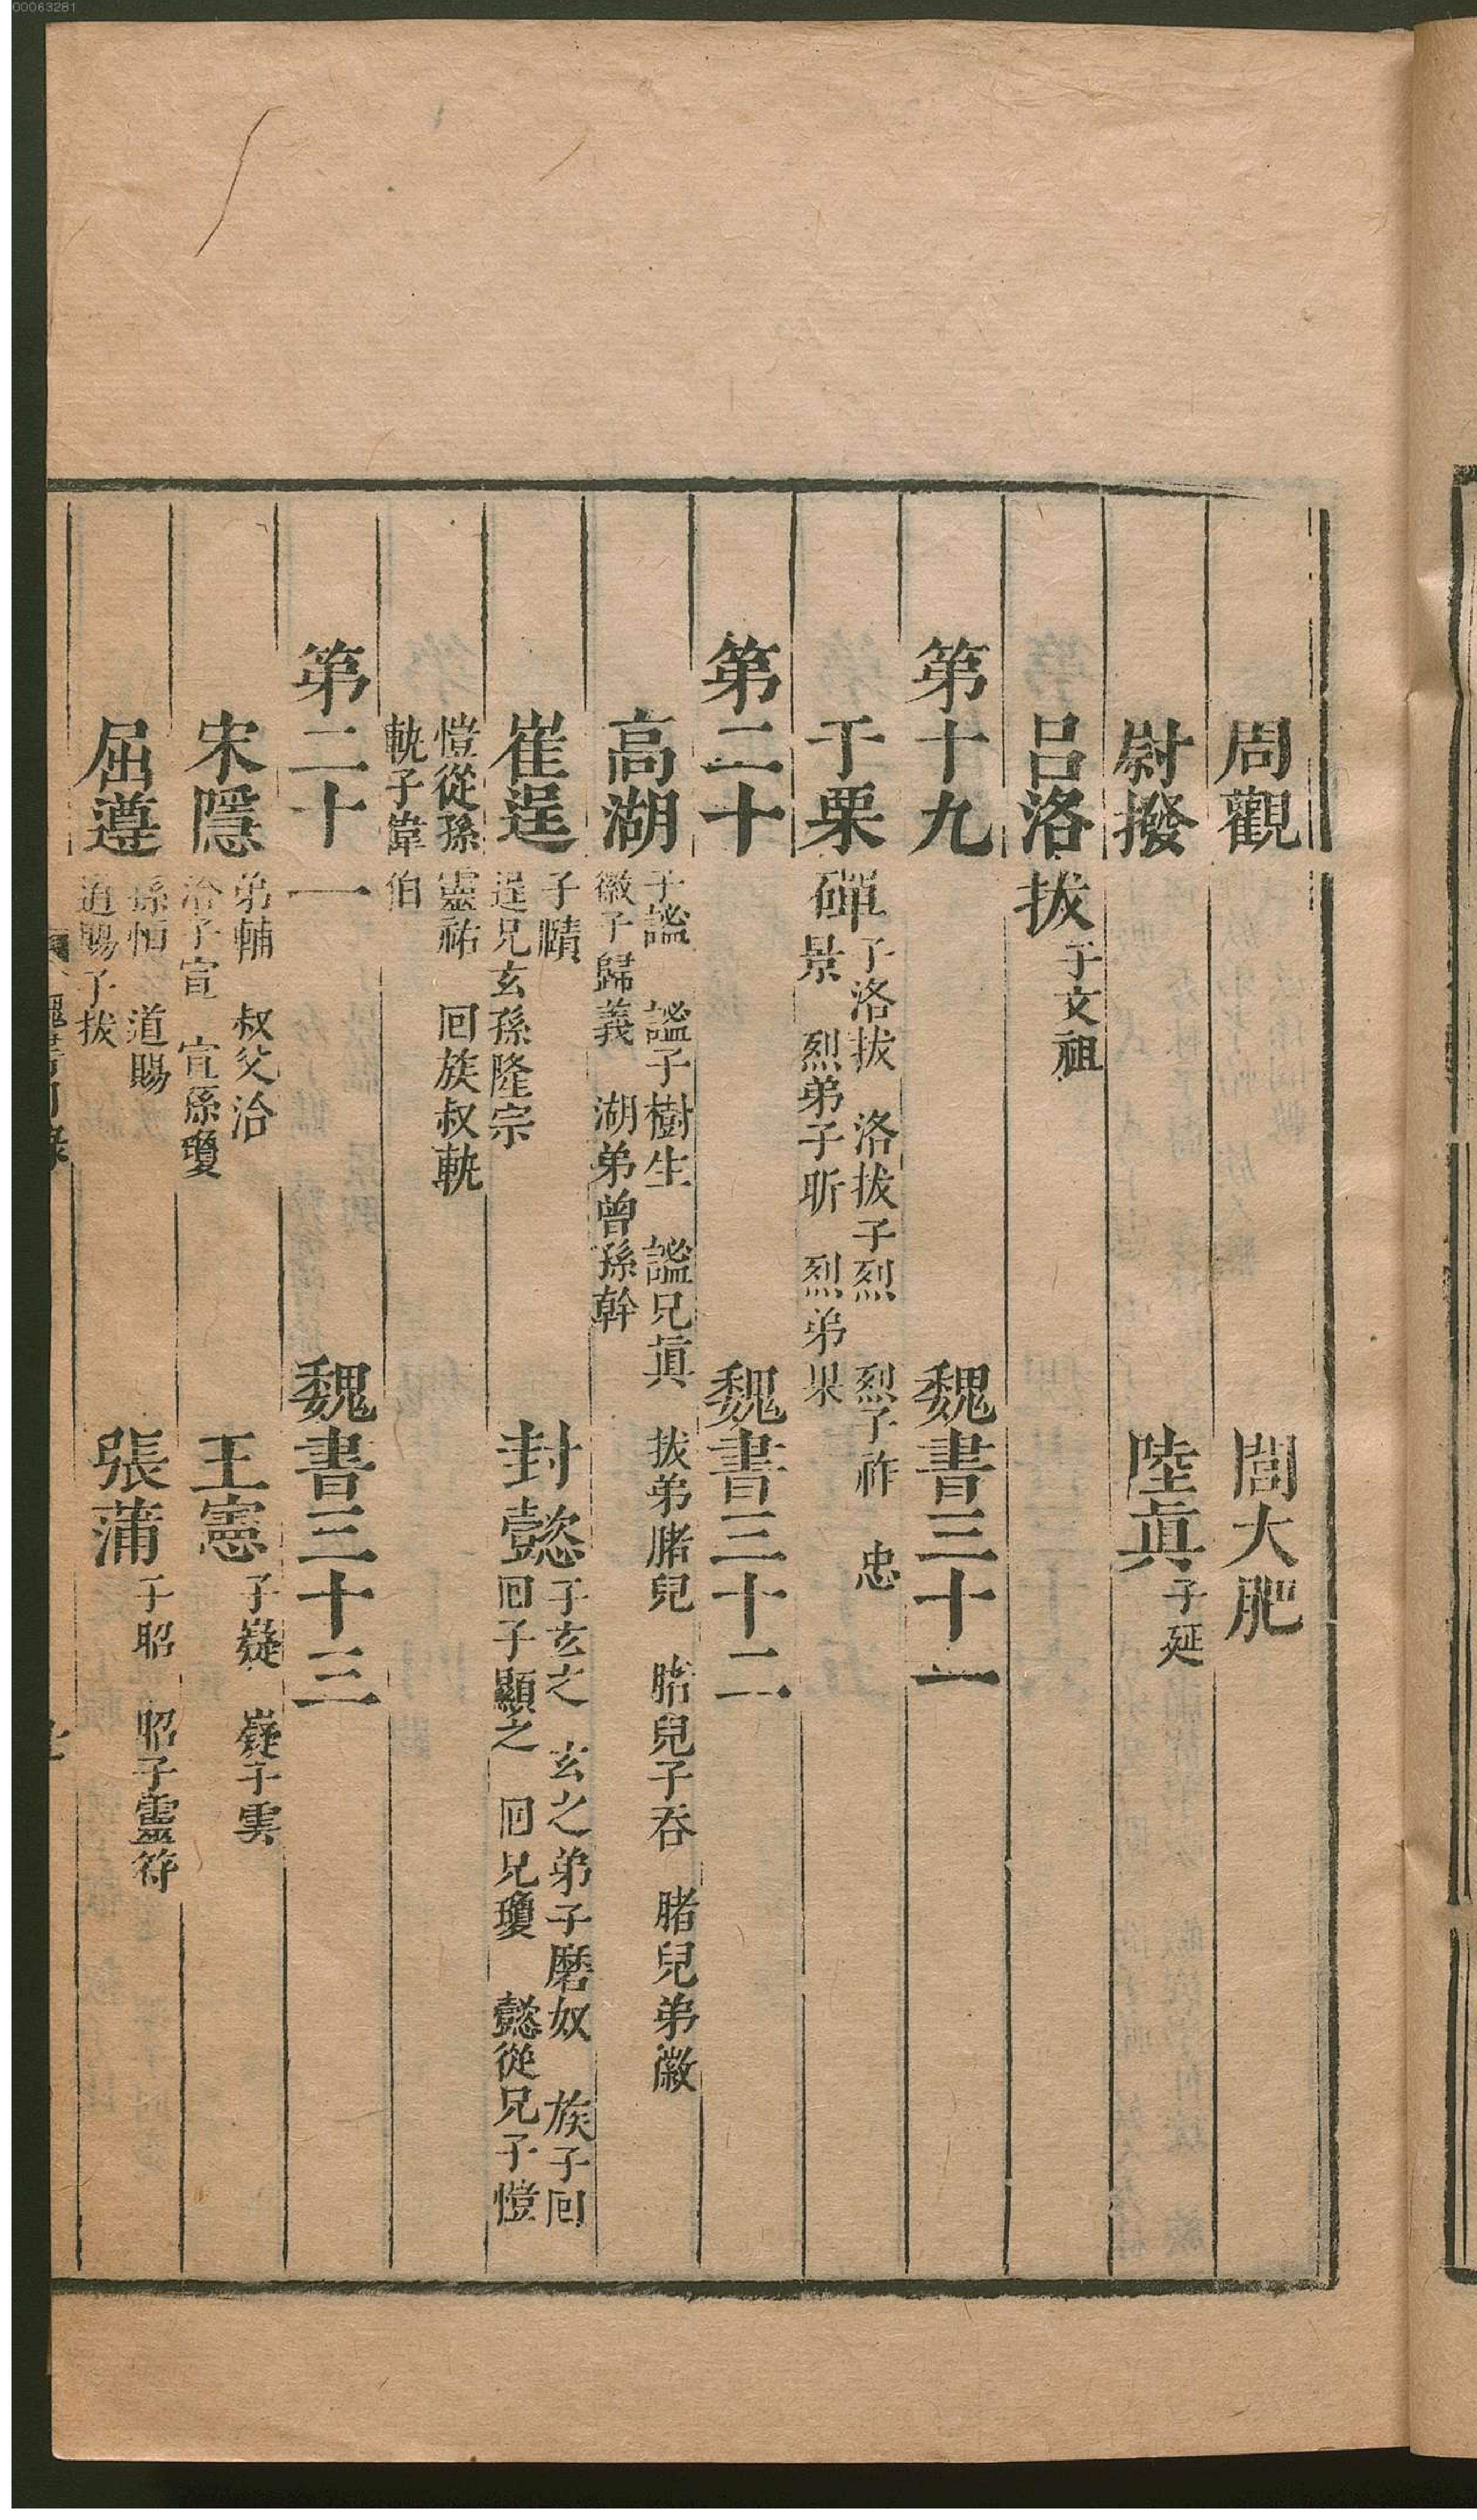 00063281
周觀　閭大肥
尉撥　陸眞子延
呂洛拔子文祖
第十九　魏書三十一
于栗磾子洛拔　洛拔子烈　烈子祚　忠
景　烈弟子昕　烈弟果
第二十　魏書三十二
高湖子謐　謐子樹生　謐兄眞　拔弟䐗兒　䐗兒子呑　䐗兒弟徽
徽子歸義　湖弟曾孫幹
崔逞子賾
逞兄玄孫隆宗
封懿子玄之　玄之弟子磨奴　族子回
回子顯之　回兄瓊　懿從兄子愷
愷從孫靈祐　回族叔軌
軌子偉伯
第二十一　魏書三十三
宋隱弟輔　叔父洽
洽子宣　宣孫瓊
王憲子嶷　嶷子雲
屈遵孫恒　道賜
道賜子拔
張蒲子昭　昭子靈符
魏書目錄